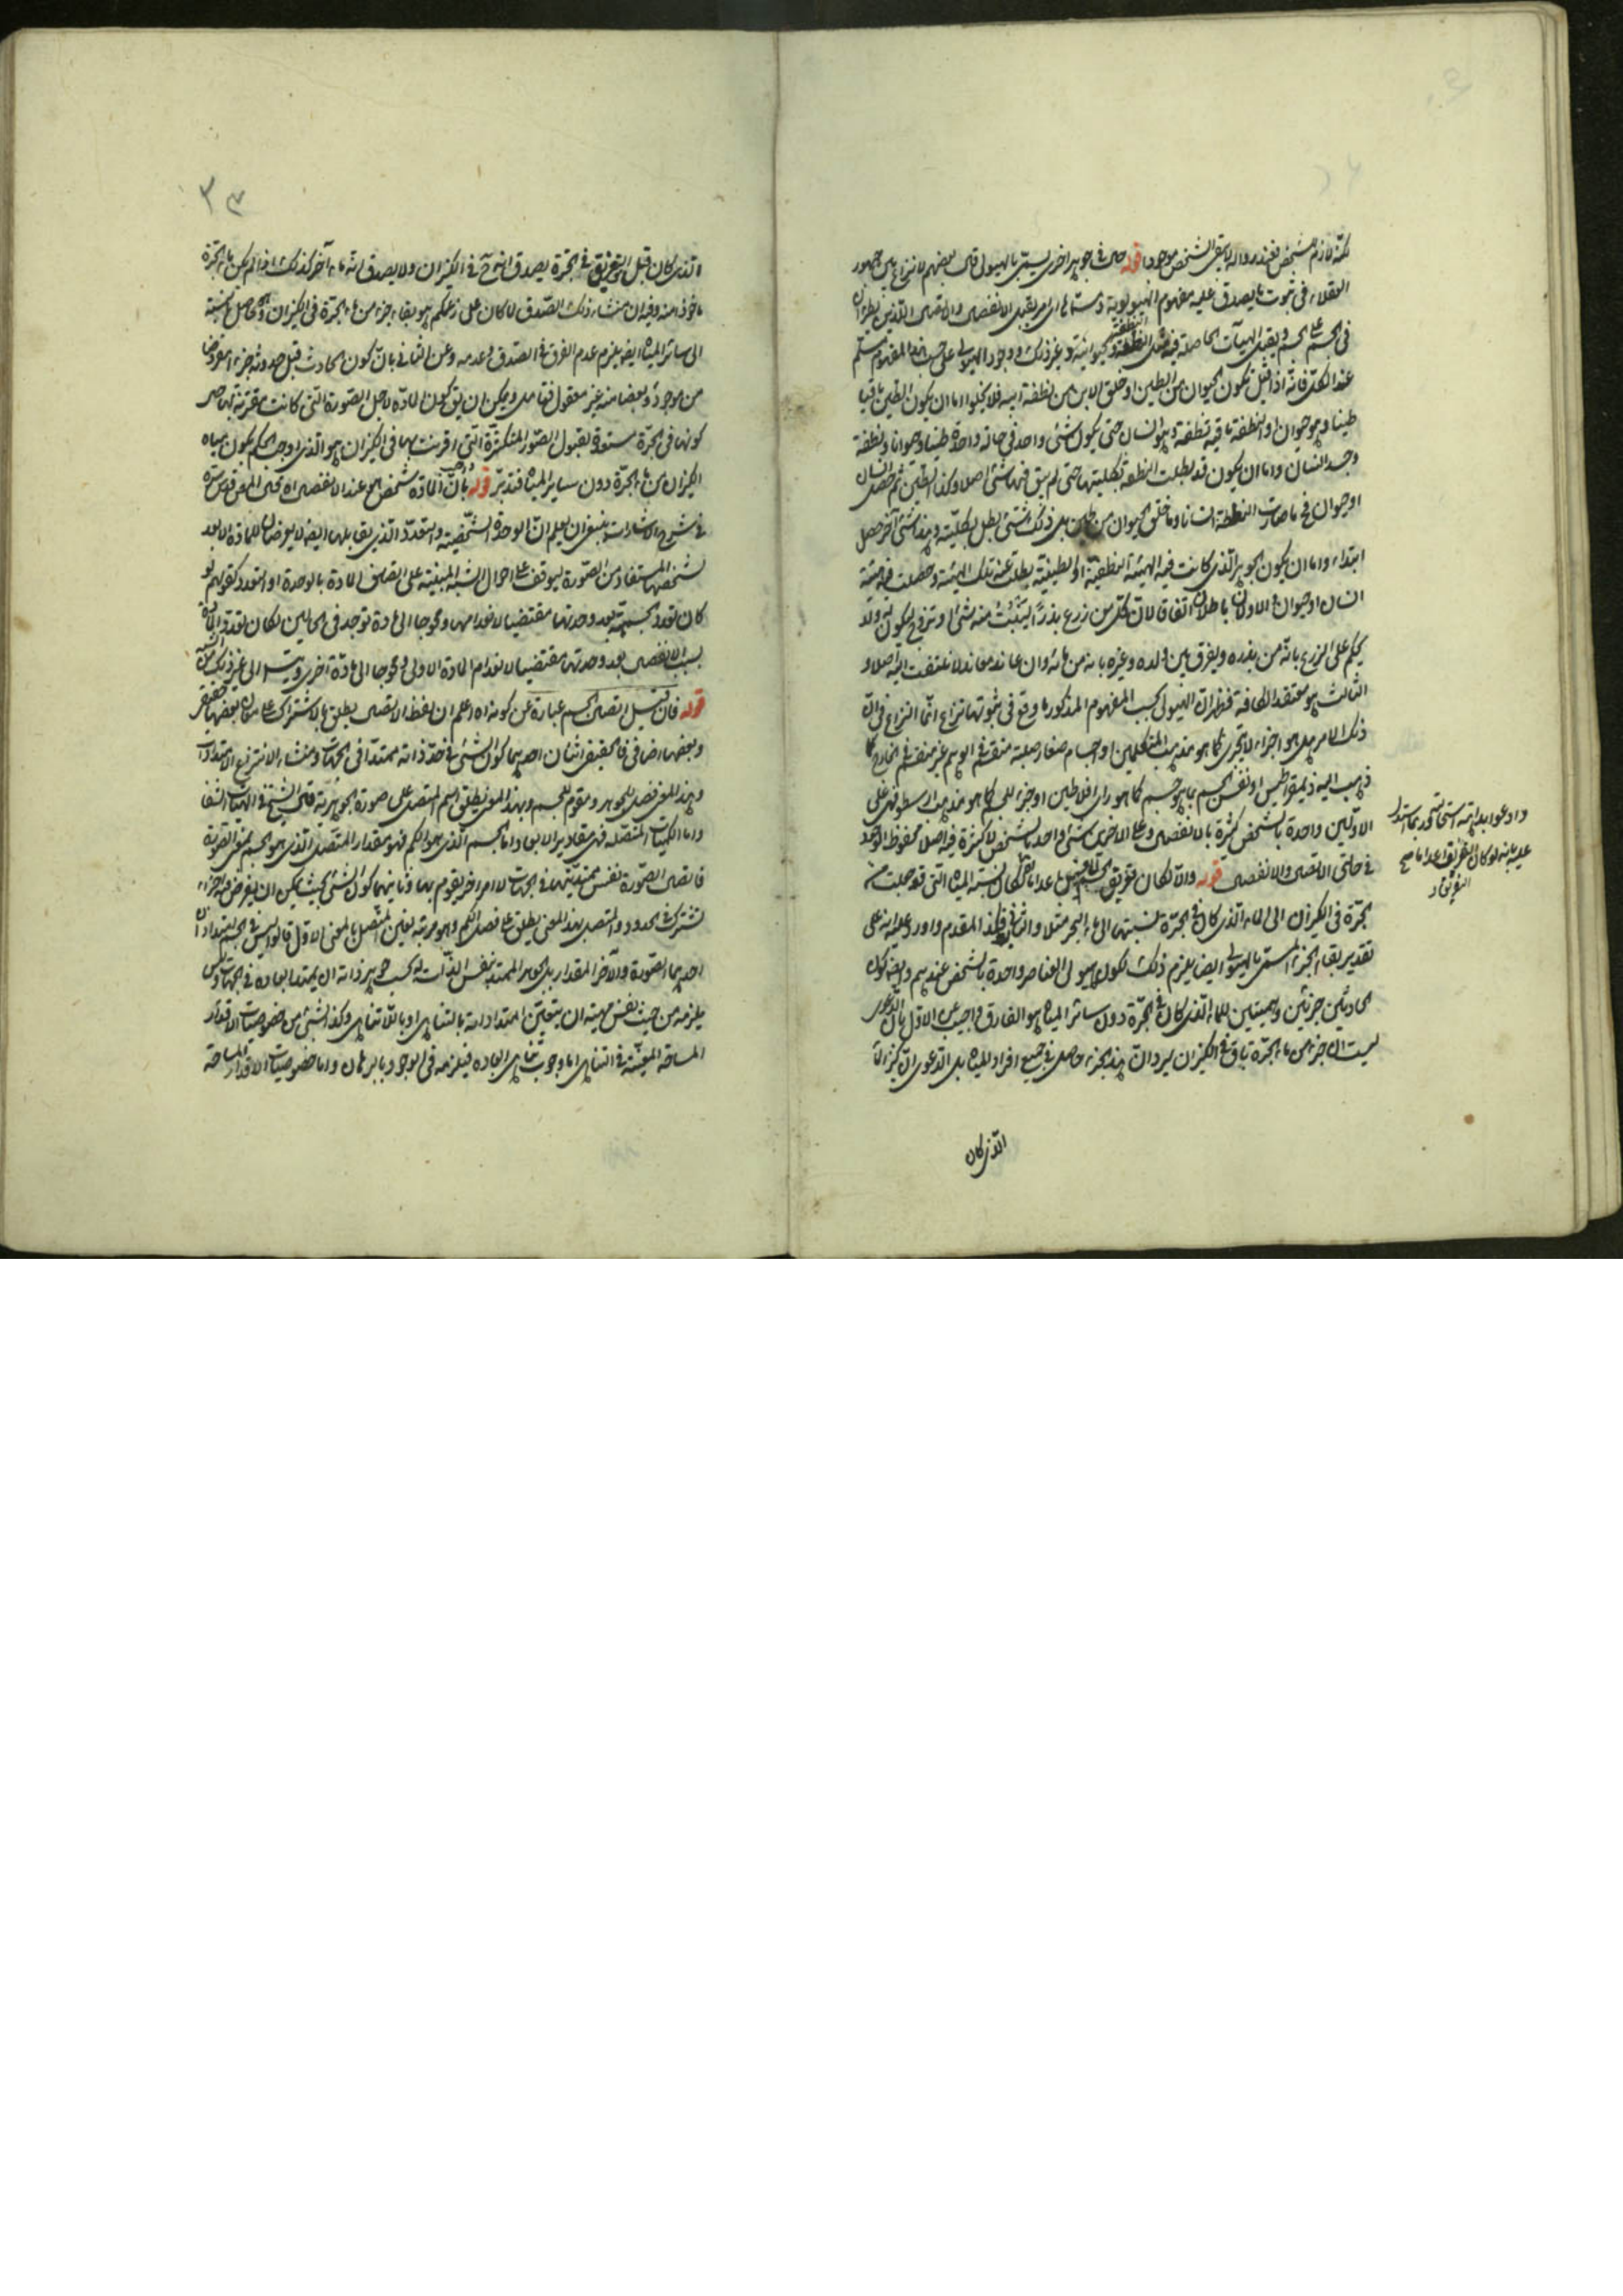 لكنه لازم لتشخصه فعند زواله لا يبقى الشخص موجودا قوله حال في جوهر اخر يسمى بالهيولى قال بعضهم لا نزاع بين جمهور
العقلاء في ثبوت ما يصدق عليه مفهوم الهيولى
في الجسم ويقبل الهيآت الحاصلة فيه وغير ذلك ووجود الهيولى على حسب هذا المفهوم مسلم
عند الكل فانه اذا قيل تكون الحيوان من الطين وخلق الابن من نطفة ابيه فلا يخلوا اما ان يكون الطين باقيا
طينا وهو حيوان والنطفة باقية نطفة وهو انسان حتى يكون شئ واحد في حالة واحدة طينا وحيوانا ونطفة
وجسد انسان واما ان يكون قد بطلت النطفة بكليتها حتى لم يبق فيها شئ اصلا وكذا الطين ثم حصل انسان
او حيوان فح ما صارت النطفة انسانا وما خلق الحيوان من طين بل ذلك شئ بطل بكليته وهذا شئ آخر حصل
ابتداء واما ان يكون الجوهر الذي كانت فيه الهيئة النطفية او الطينية بطلت عنه تلك الهيئة وحصلت فيه هيئة
انسان او حيوان والاولان باطلان اتفاقا لان كل من زرع بذرا لينبت منه شئ او تزوج ليكون له ولد
يحكم على الزرع بانه من بذره ويفرق بين ولده وغيره بانه من مائه وان عاند معاند لا نلتفت اليه اصلا و
الثالث هو معتقد الكافة فظهر ان الهيولى بحسب المفهوم المذكور ما وقع في ثبوتها نزاع انما النزاع في ان
ذلك الامر هل هو اجزاء لا تتجزى كما هو مذهب المتكلمين او اجسام صغار صلبة منقسمة في الوهم غير منقسمة في الخارج كما
ذهب اليه ذيمقراطيس او نفس الجسم بما هو جسم كما هو راى افلاطن او جزء للجسم كما هو مذهب ارسطو فهى على
الاولين واحدة بالشخص كثيرة بالانفصال وعلى الاخرين شئ واحد بالشخص لا كثرة فيه اصلا محفوظ الوجود
في حالتى الاتصال والانفصال قوله والا لكان تفريق الجسم اعداما لكان نسبة المياه التي قد جعلت من
الجرة في الكيزان الى الماء الذي كان في الجرة كنسبتها الى ماء البحر مثلا والتالي فكذا المقدم واورد عليه انه على
تقدير بقاء الجزء المسمى بالهيولى ايضا يلزم ذلك لكون هيولى العناصر واحدة بالشخص عندهم وايضا كون
الحادثين جزئين وهميين للماء الذي كان في الجرة دون سائر المياه هو الفارق واجيب عن الاول بان الدعوى
ليست ان جزء من ماء الجرة باق في الكيزان ليرد ان هذا الجزء حاصل في جميع افراد المياه بل الدعوى ان
الذي كان
وادعوا بداهته
عليه بانه لو كان التفريق اعداما
٣٣
الذي كان قبل التفريق في الجرة يصدق انه ح في الكيزان ولا يصدق انه ماء آخر كذلك اذا لم يكن ماء الجرة
ماخوذا منه وفيه ان منشاء ذلك الصدق لما كان على زعمكم هو بقاء جزء من ماء الجرة في الكيزان والحاصل نسبته
الى سائر المياه ايضا يلزم عدم الفرق في الصدق وعدمه وعن الثاني بان كون الحادث قبل حدوثه جزء مفروضا
من موجود وبعضا منه غير معقول فتامل ويمكن ان يق كون المادة لاجل الصورة التي كانت مقترنة بها حال
كونها في الجرة مستعدة لقبول الصور المتكثرة التي اقترنت بها في الكيزان هو الذي اوجب الحكم بكون مياه
الكيزان من ماء الجرة دون سائر المياه فتدبر قوله بان المادة شخص هو عند الانفصال اه قال المص قدس سره
في شرح الاشارات ينبغي ان يعلم ان الوحدة الشخصية والتعدد الذي يقابلها ايضا لا يعرضان للمادة الا بعد
تشخصها المستفاد من الصورة ليوقف على احوال الشبه المبنية على اتصاف المادة بالوحدة او التعدد كقولهم لو
كان تعدد الجسمية بعد وحدتها مقتضيا لانعدامها ومحوجا الى مادة توجد في الحالين لكان تعدد المادة
بسبب الانفصال بعد وحدتها مقتضيا لانعدام المادة الاولى ومحوجا الى مادة آخرى ويتسلسل الى غير ذلك
قوله فان قيل اتصال الجسم عبارة عن كونه اه اعلم ان لفظ الاتصال يطلق بالاشتراك على معان بعضها حقيقي
وبعضها اضافي فالحقيقي اثنان احدهما كون الشئ في حد ذاته ممتدا في الجهات ومنشاء لانتزاع الامتدادات
وهذا المعنى فصل للجوهر ومقوم للجسم وبهذا المعنى يطلق اسم المتصل على صورة الجوهرية قال الشيخ في الهيات الشفا
واما الكميات المتصلة فهى مقادير الابعاد واما الجسم الذي هو الكم فهو مقدار المتصل الذي هو الجسم بمعنى الصورة
فاتصال الصورة نفس ممتديتها في الجهات لا امر اخر يقوم بها وثانيهما كون الشئ بحيث يمكن ان يفرض فيه اجزاء
تشترك في الحدود والمتصل بهذا المعنى يطلق على فصل الكم وهو مرتبة تعين المتصل بالمعنى الاول قالوا ليس في الجسم امتدادان
احدهما الصورة والآخر المقدار بل الجوهر الممتد بنفس الذات له بحسب جوهر ذاته ان يمتد ابعاده في الجهات وليس
يلزمه من حيث نفس مهيته ان يتعين امتداداته بالتناهى او باللاتناهى وكذا الشئ من خصوصيات الاقدار
المساحة المعينة في التناهى اما وجوب تناهى ابعاده فيلزمه في الوجود بالبرهان واما خصوصيات الاقدار المساحة